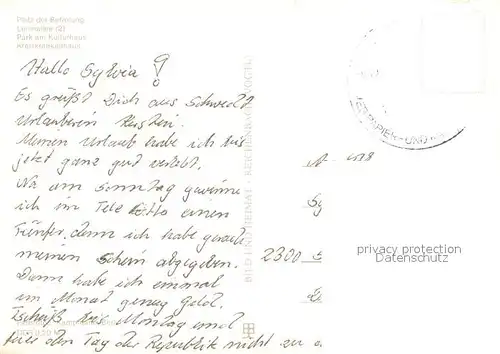 Platz der Befreiung
Lenineallee (2)
Park am Kulturhaus
Kreiskrankenhaus
Hallo Sylvia!
Es grüßt Dich aus Schwedt
Urlauberin
Meinen Urlaub habe ich bis
jetzt ganz gut verlebt.
Na am Sonntag gewinne
ich im Tele Lotto einen
Fünfer, denn ich habe gerade
meinen Schein abgegeben.
Dann habe ich einmal
im Monat genug Geld.
Tschüß bis Montag und
den Tag der Republik nicht zu
BILD UND HEIMAT REICHENBACH (VOGTL)
PAPIER- UND
2300
privacy protection
Datenschutz